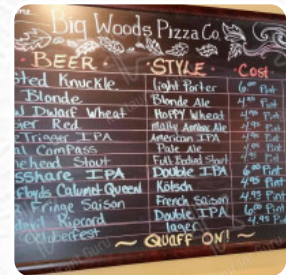 Big Woods Pizza Co.
BEER · STYLE · Cost
sted Knuckle light Porter 6.00 Pint
Blonde Blonde Ale Pint
Dwarf Wheat Hoppy Wheat 4.95 Pint
er Red Malty Amber Ale 4.95 Pint
Trigger IPA American IPA 4.95 Pint
al Compass Pale Ale 4.95 Pint
ehead Stout Full Bodied Stout 4.95 Pint
ssshare IPA Double IPA 6.00 Pint
Floyds Calumet Queen Kölsch 4.95 Pint
Fringe Saison French Saison 4.95 Pint
Ripcord Double IPA 6.00 Pint
Octoberfest lager 4.95 Pint
~ QUAFF ON! ~